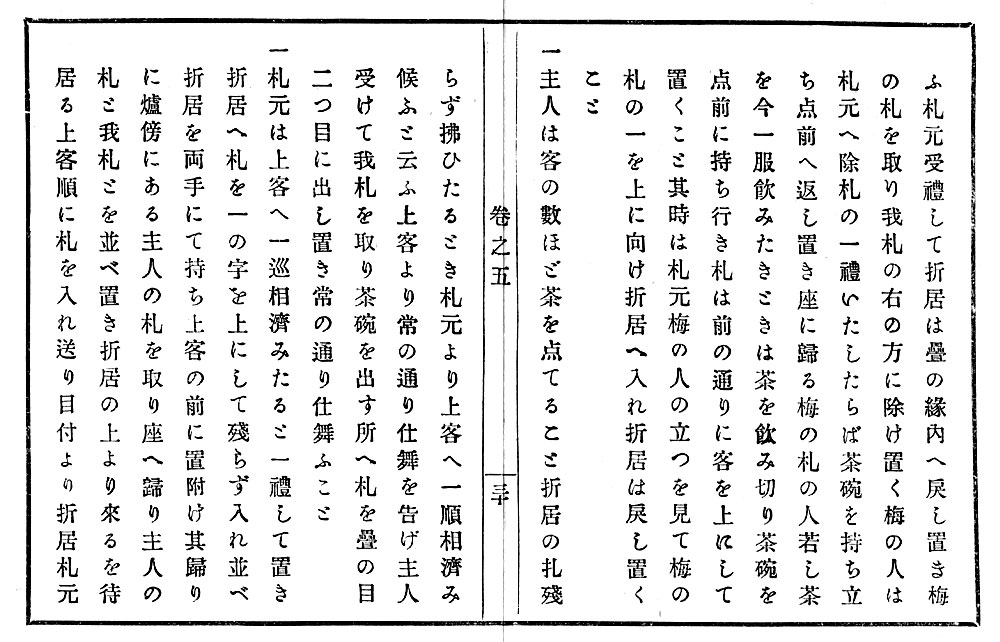 ふ札元受禮して折居は疊の緣內へ戾し置き梅
の札を取り我札の右の方に除け置く梅の人は
札元へ除札の一禮いたしたらば茶碗を持ち立
ち点前へ返し置き座に歸る梅の札の人若し茶
を今一服飮みたきときは茶を飮み切り茶碗を
点前に持ち行き札は前の通りに客を上にして
置くこと其時は札元梅の人の立つを見て梅の
札の一を上に向け折居へ入れ折居は戾し置く
こと
一主人は客の數ほど茶を点てること折居の札殘
卷之五
三十
らず拂ひたるとき札元より上客へ一順相濟み
候ふと云ふ上客より常の通り仕舞を告げ主人
受けて我札を取り茶碗を出す所へ札を疊の目
二つ目に出し置き常の通り仕舞ふこと
一札元は上客へ一巡相濟みたると一禮して置き
折居へ札を一の字を上にして殘らず入れ並べ
折居を両手にて持ち上客の前に置附け其歸り
に爐傍にある主人の札を取り座へ歸り主人の
札と我札とを並べ置き折居の上より來るを待
居る上客順に札を入れ送り目付より折居札元